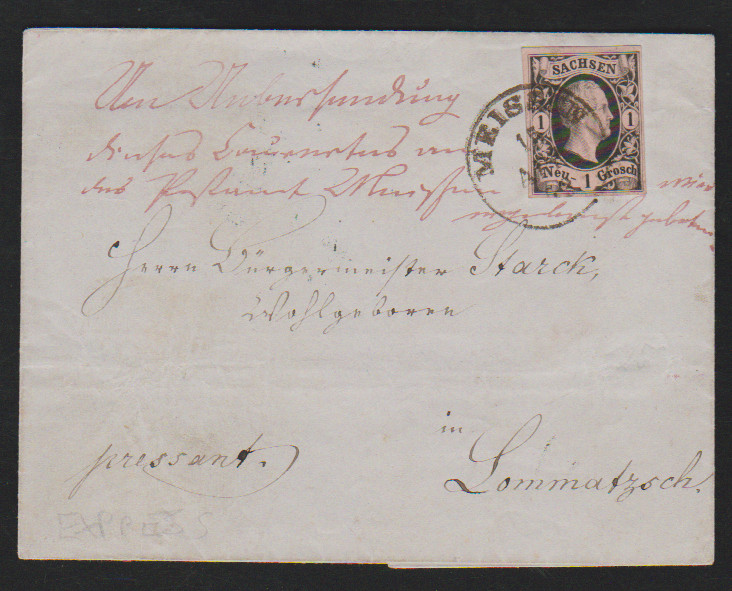 SACHSEN
1 1
Neu- 1 Grosch
MEISSEN
Um Uebersendung
dieses Couvertes an
das Postamt Meissen wird
ergebenst gebeten.
Herrn Bürgermeister Starck,
Wohlgeboren
in
pressant.
Lommatzsch.
EXPRES